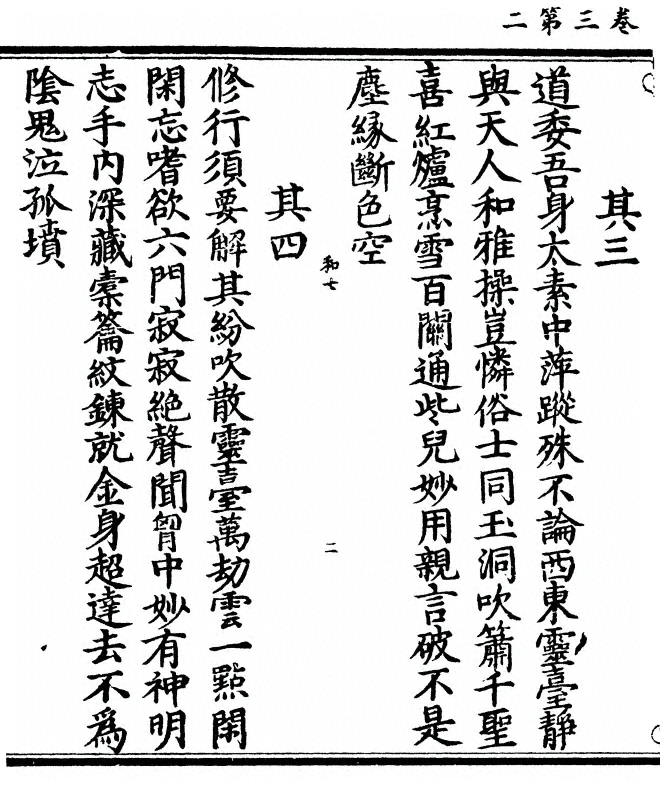 卷三第二
其三
道委吾身太素中萍蹤殊不論西東靈臺靜
與天人和雅操豈憐俗士同玉洞吹簫千聖
喜紅爐烹雪百關通些兒妙用親言破不是
塵緣斷色空
和七
二
其四
修行須要解其紛吹散靈臺萬劫雲一點閑
閑忘嗜欲六門寂寂絕聲聞胷中妙有神明
志手內深藏槖籥紋鍊就金身超達去不爲
陰鬼泣孤墳